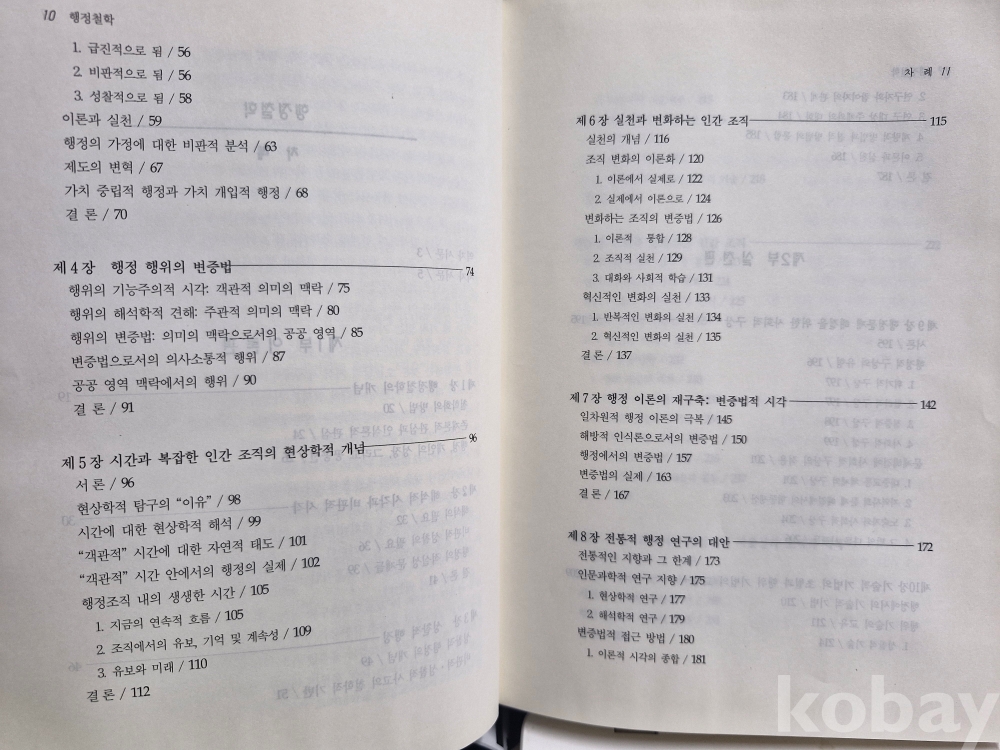 10 행정철학
1. 급진적으로 됨 / 56
2. 비판적으로 됨 / 56
3. 성찰적으로 됨 / 58
이론과 실천 / 59
행정의 가정에 대한 비판적 분석 / 63
제도의 변혁 / 67
가치 중립적 행정과 가치 개입적 행정 / 68
결 론 / 70
제 4 장 행정 행위의 변증법 74
행위의 기능주의적 시각: 객관적 의미의 맥락 / 75
행위의 해석학적 견해: 주관적 의미의 맥락 / 80
행위의 변증법: 의미의 맥락으로서의 공공 영역 / 85
변증법으로서의 의사소통적 행위 / 87
공공 영역 맥락에서의 행위 / 90
결 론 / 91
제 5 장 시간과 복잡한 인간 조직의 현상학적 개념 96
서 론 / 96
현상학적 탐구의 “이유” / 98
시간에 대한 현상학적 해석 / 99
“객관적” 시간에 대한 자연적 태도 / 101
“객관적” 시간 안에서의 행정의 실제 / 102
행정조직 내의 생생한 시간 / 105
1. 지금의 연속적 흐름 / 105
2. 조직에서의 유보, 기억 및 계속성 / 109
3. 유보와 미래 / 110
결 론 / 112
차 례 11
제 6 장 실천과 변화하는 인간 조직 115
실천의 개념 / 116
조직 변화의 이론화 / 120
1. 이론에서 실제로 / 122
2. 실제에서 이론으로 / 124
변화하는 조직의 변증법 / 126
1. 이론적 통합 / 128
2. 조직적 실천 / 129
3. 대화와 사회적 학습 / 131
혁신적인 변화의 실천 / 133
1. 반복적인 변화의 실천 / 134
2. 혁신적인 변화의 실천 / 135
결 론 / 137
제 7 장 행정 이론의 재구축: 변증법적 시각 142
일차원적 행정 이론의 극복 / 145
해방적 인식론으로서의 변증법 / 150
행정에서의 변증법 / 157
변증법의 실제 / 163
결 론 / 167
제 8 장 전통적 행정 연구의 대안 172
전통적인 지향과 그 한계 / 173
인문과학적 연구 지향 / 175
1. 현상학적 연구 / 177
2. 해석학적 연구 / 179
변증법적 접근 방법 / 180
1. 이론적 시각의 종합 / 181
kobay